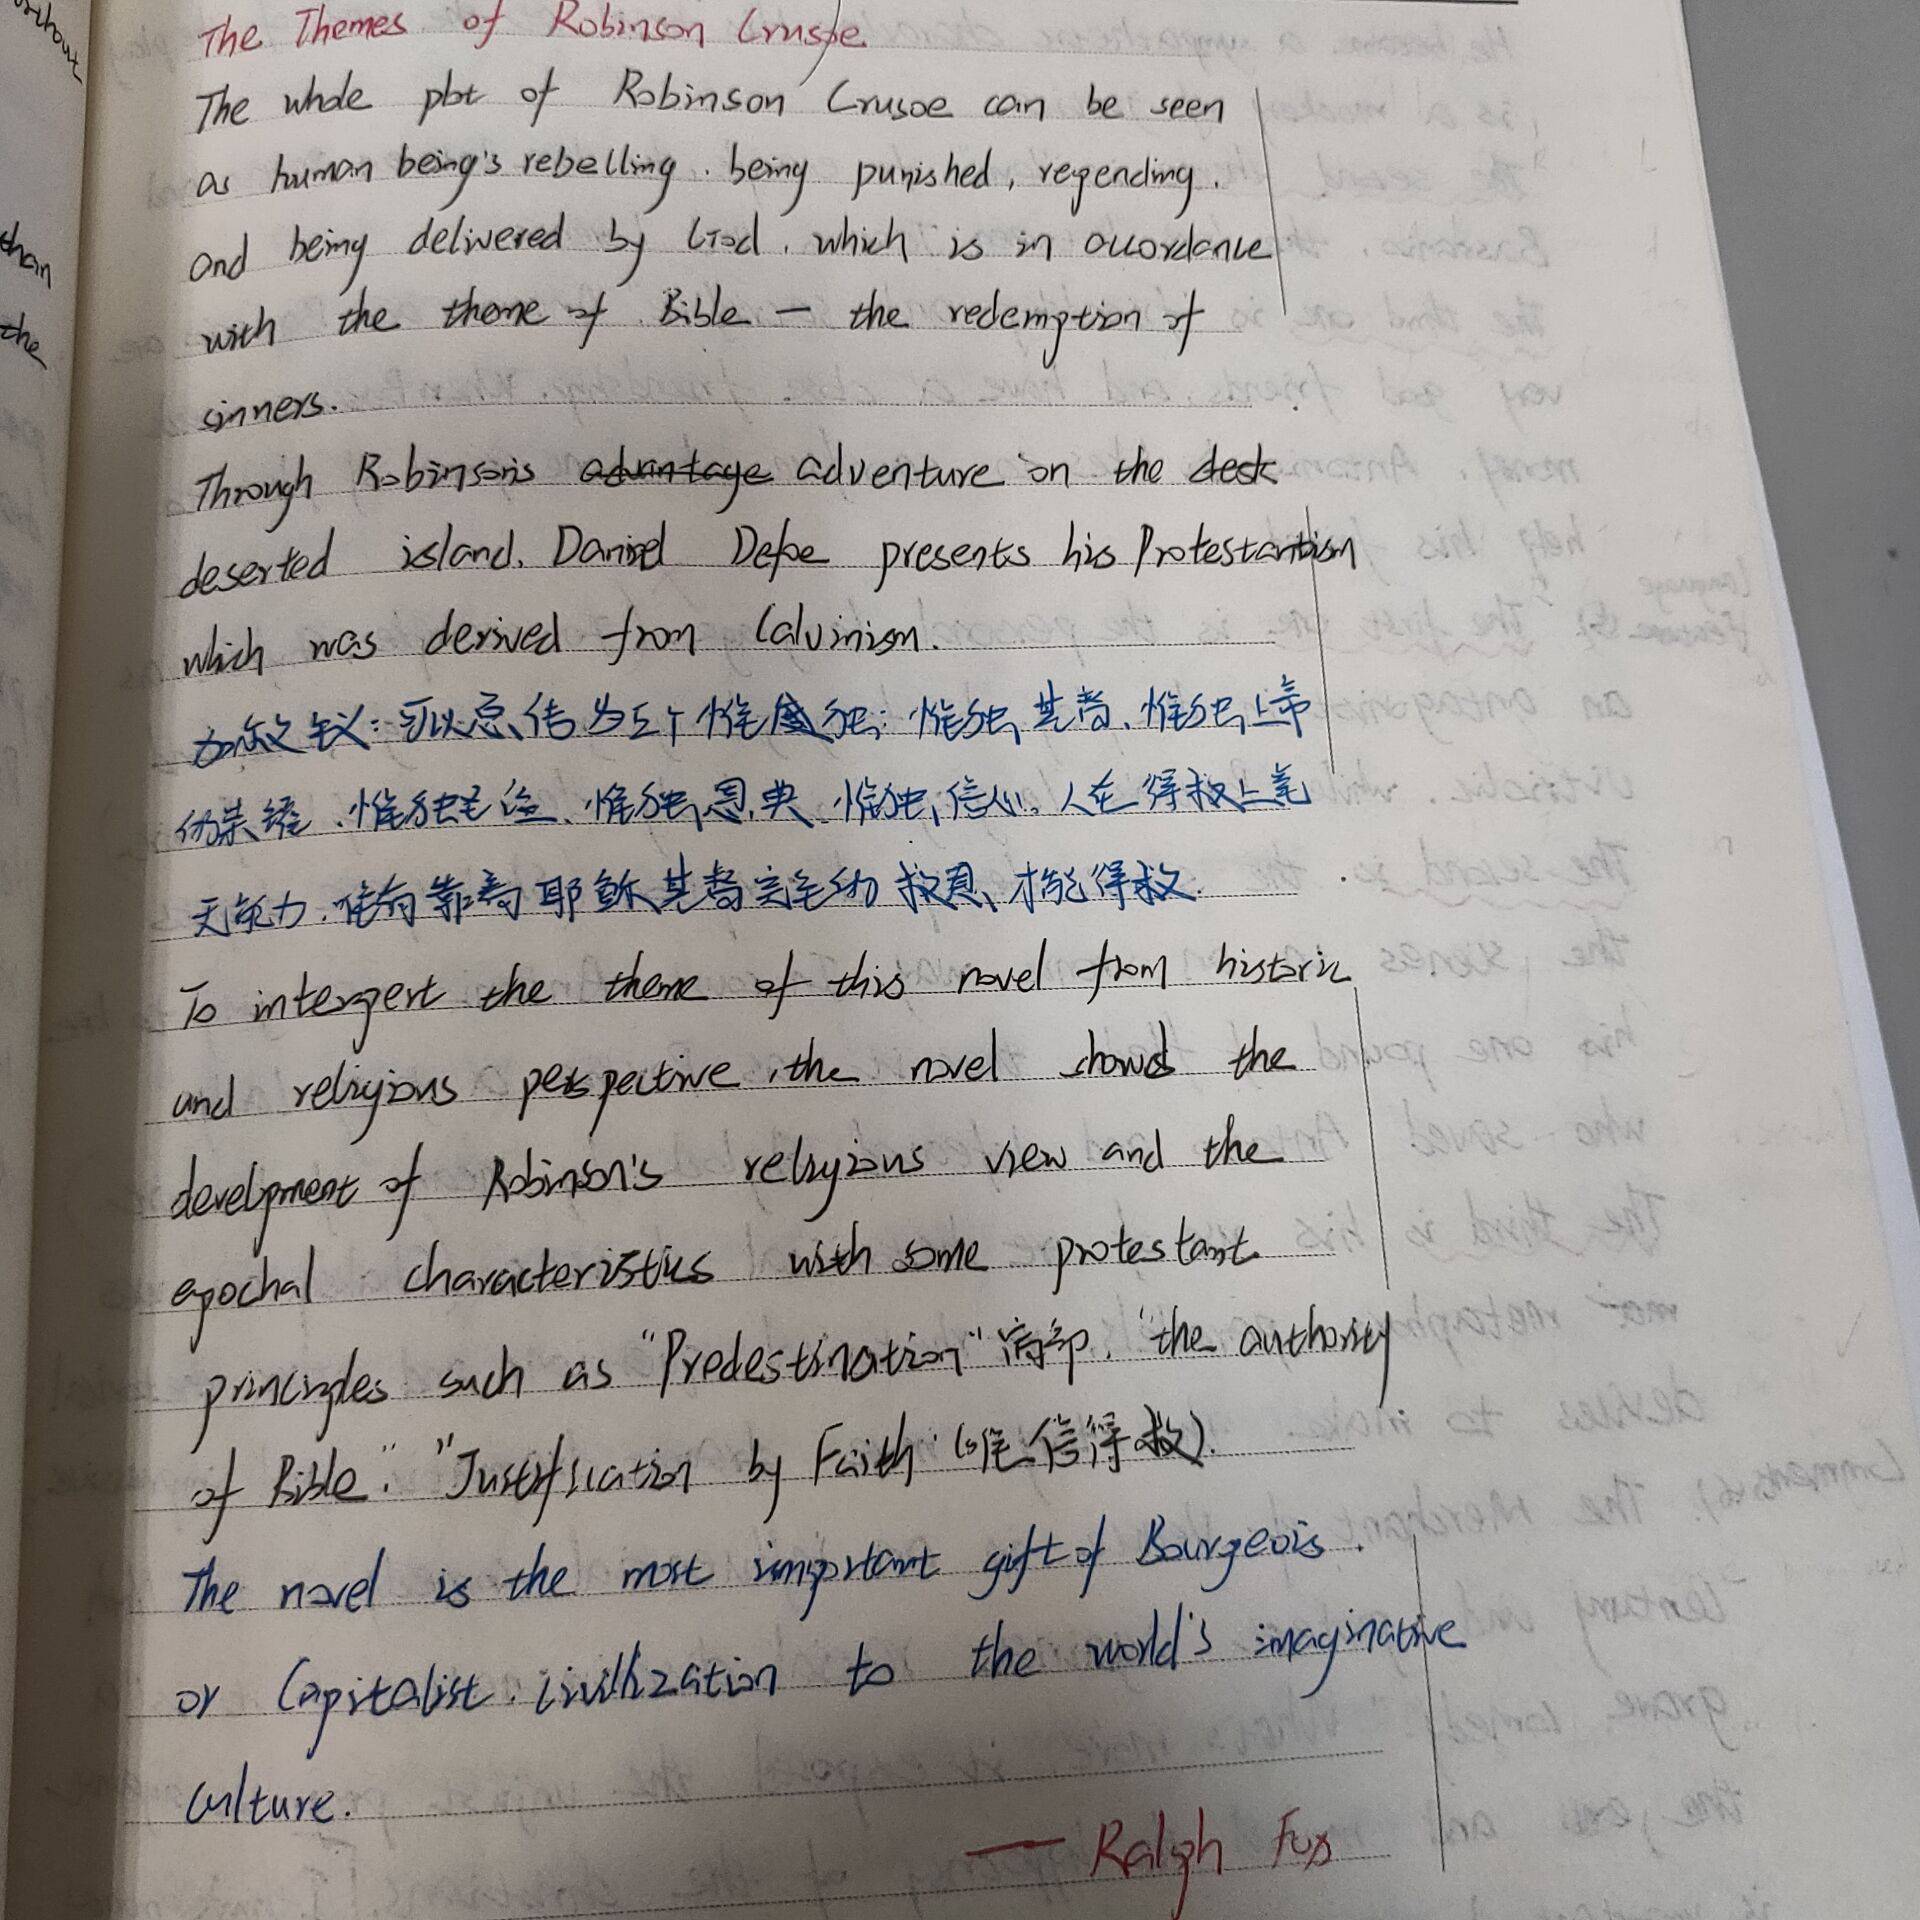 The Themes of Robinson Crusoe
The whole plot of Robinson Crusoe can be seen
as human being's rebelling. being punished, repending.
and being delivered by God, which is in accordance
with the theme of Bible — the redemption of
sinners.
Through Robinson's advantage adventure on the desk
deserted island, Daniel Defoe presents his Protestantism
which was derived from Calvinism.
加尔文主义：可以总结为五个惟独：惟独基督、惟独上帝
的荣耀、惟独圣经、惟独恩典、惟独信心。人在得救上毫
无能力，唯有靠着耶稣基督完全的救恩、才能得救.
To interpert the theme of this novel from historic
and religious perspective, the novel shows the
development of Robinson's religious view and the
epochal characteristics with some protestant
principles such as "Predestination" "the authority
of Bible." "Justification by Faith" (唯信得救).
The novel is the most important gift of Bourgeois.
or Capitalist. civilization to the world's imaginative
culture.
— Ralph Fox
without
than
the